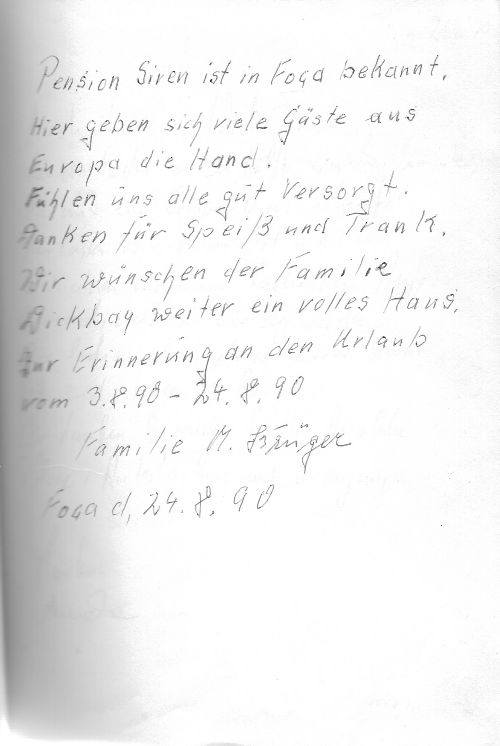 Pension Siren ist in Foça bekannt,
Hier geben sich viele Gäste aus
Europa die Hand.
Fühlen uns alle gut versorgt.
Danken für Speiß und Trank.
Wir wünschen der Familie
Dickbay weiter ein volles Haus.
Zur Erinnerung an den Urlaub
vom 3.8.90 - 24.8.90
Familie M.
Foça d, 24.8.90